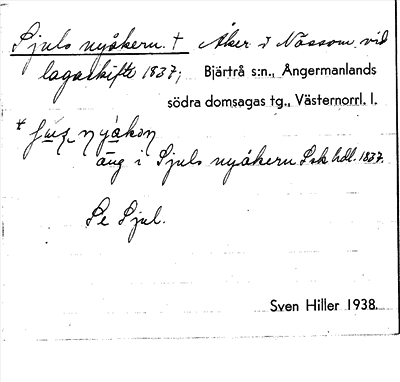 Sjuls nyåkern. † Åker i Nässom vid
lagaskifte 1827; Bjärtrå s:n., Ångermanlands
södra domsagas tg., Västernorrl. l.
nyåkon
ång i Sjuls nyåkern Lsk hdl. 1827.
Se Sjul.
Sven Hiller 1938.